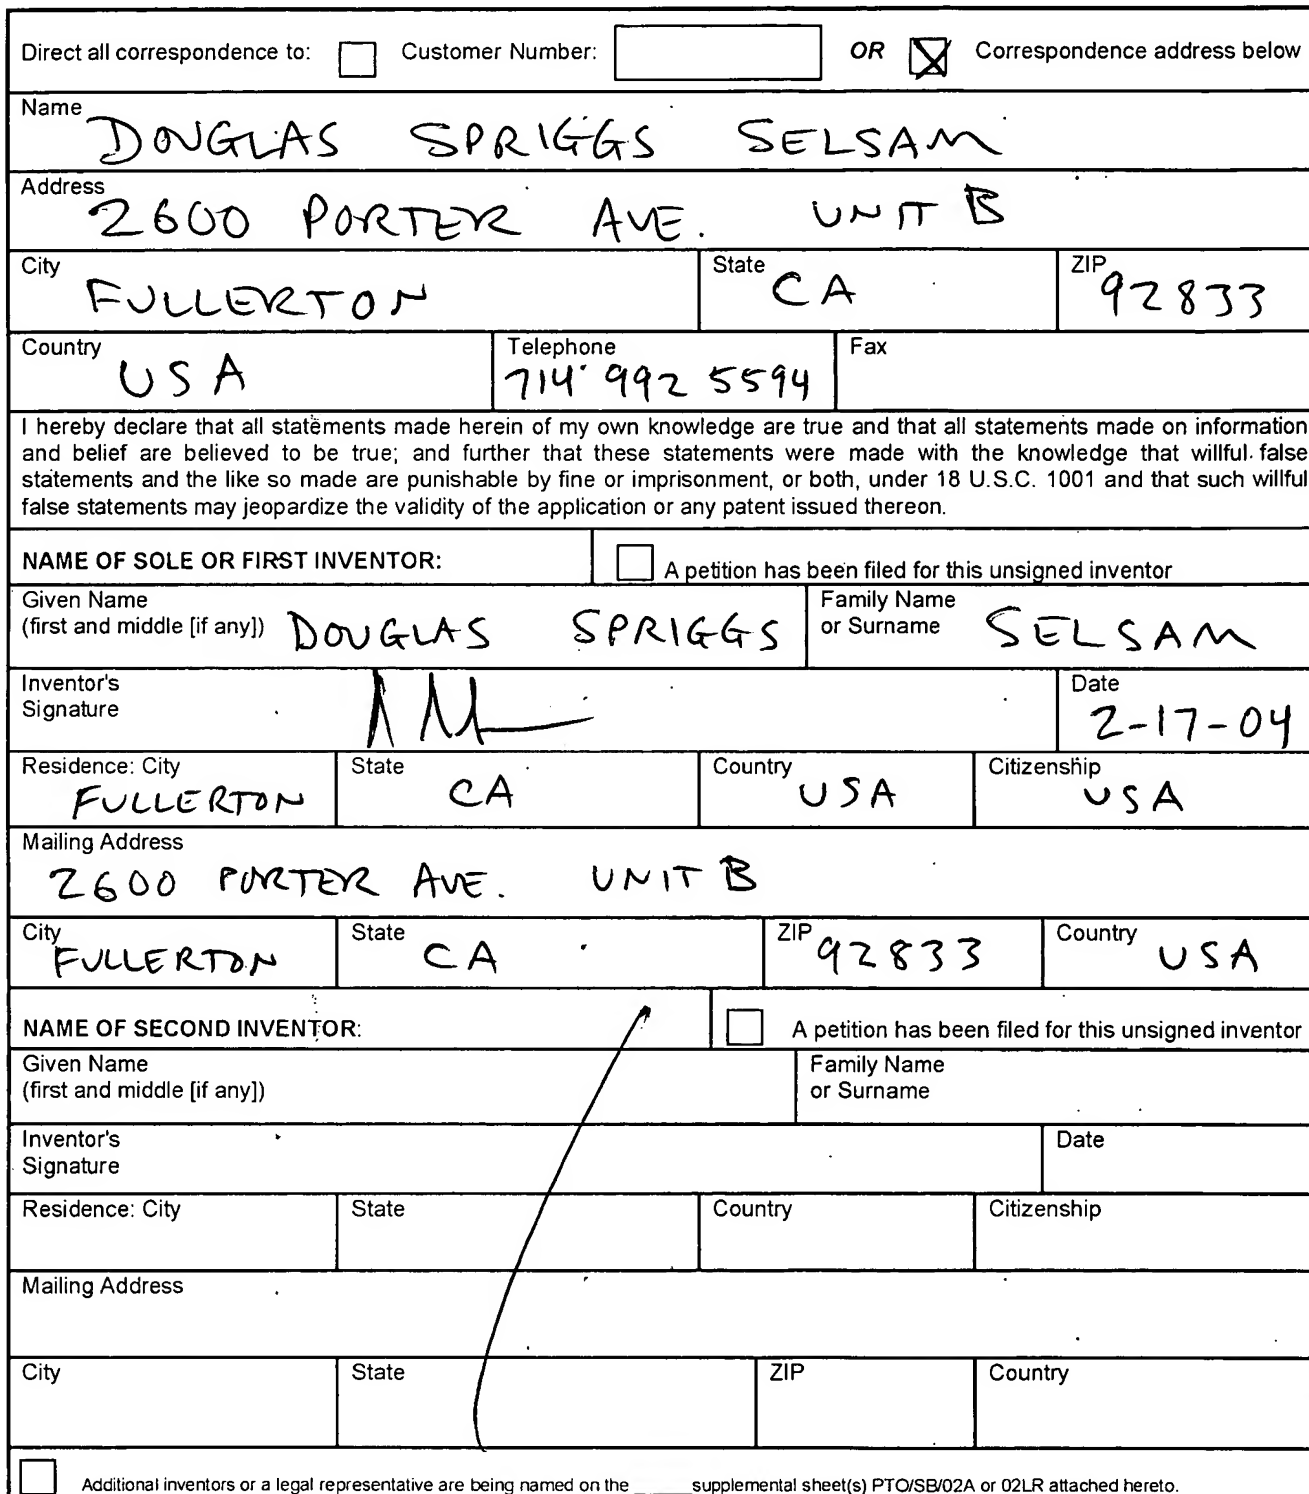 Direct all correspondence to: Customer Number: OR Correspondence address below
Name
DOUGLAS SPRIGGS SELSAM
Address
2600 PORTER AVE. UNIT B
City FULLERTON State CA ZIP 92833
Country USA Telephone 714 992 5594 Fax
I hereby declare that all statements made herein of my own knowledge are true and that all statements made on information
and belief are believed to be true; and further that these statements were made with the knowledge that willful false
statements and the like so made are punishable by fine or imprisonment, or both, under 18 U.S.C. 1001 and that such willful
false statements may jeopardize the validity of the application or any patent issued thereon.
NAME OF SOLE OR FIRST INVENTOR: A petition has been filed for this unsigned inventor
Given Name Family Name
(first and middle [if any]) DOUGLAS SPRIGGS or Surname SELSAM
Inventor's Date
Signature 2-17-04
Residence: City State Country Citizenship
FULLERTON CA USA USA
Mailing Address
2600 PORTER AVE. UNIT B
City State ZIP Country
FULLERTON CA 92833 USA
NAME OF SECOND INVENTOR: A petition has been filed for this unsigned inventor
Given Name Family Name
(first and middle [if any]) or Surname
Inventor's Date
Signature
Residence: City State Country Citizenship
Mailing Address
City State ZIP Country
Additional inventors or a legal representative are being named on the ______supplemental sheet(s) PTO/SB/02A or 02LR attached hereto.